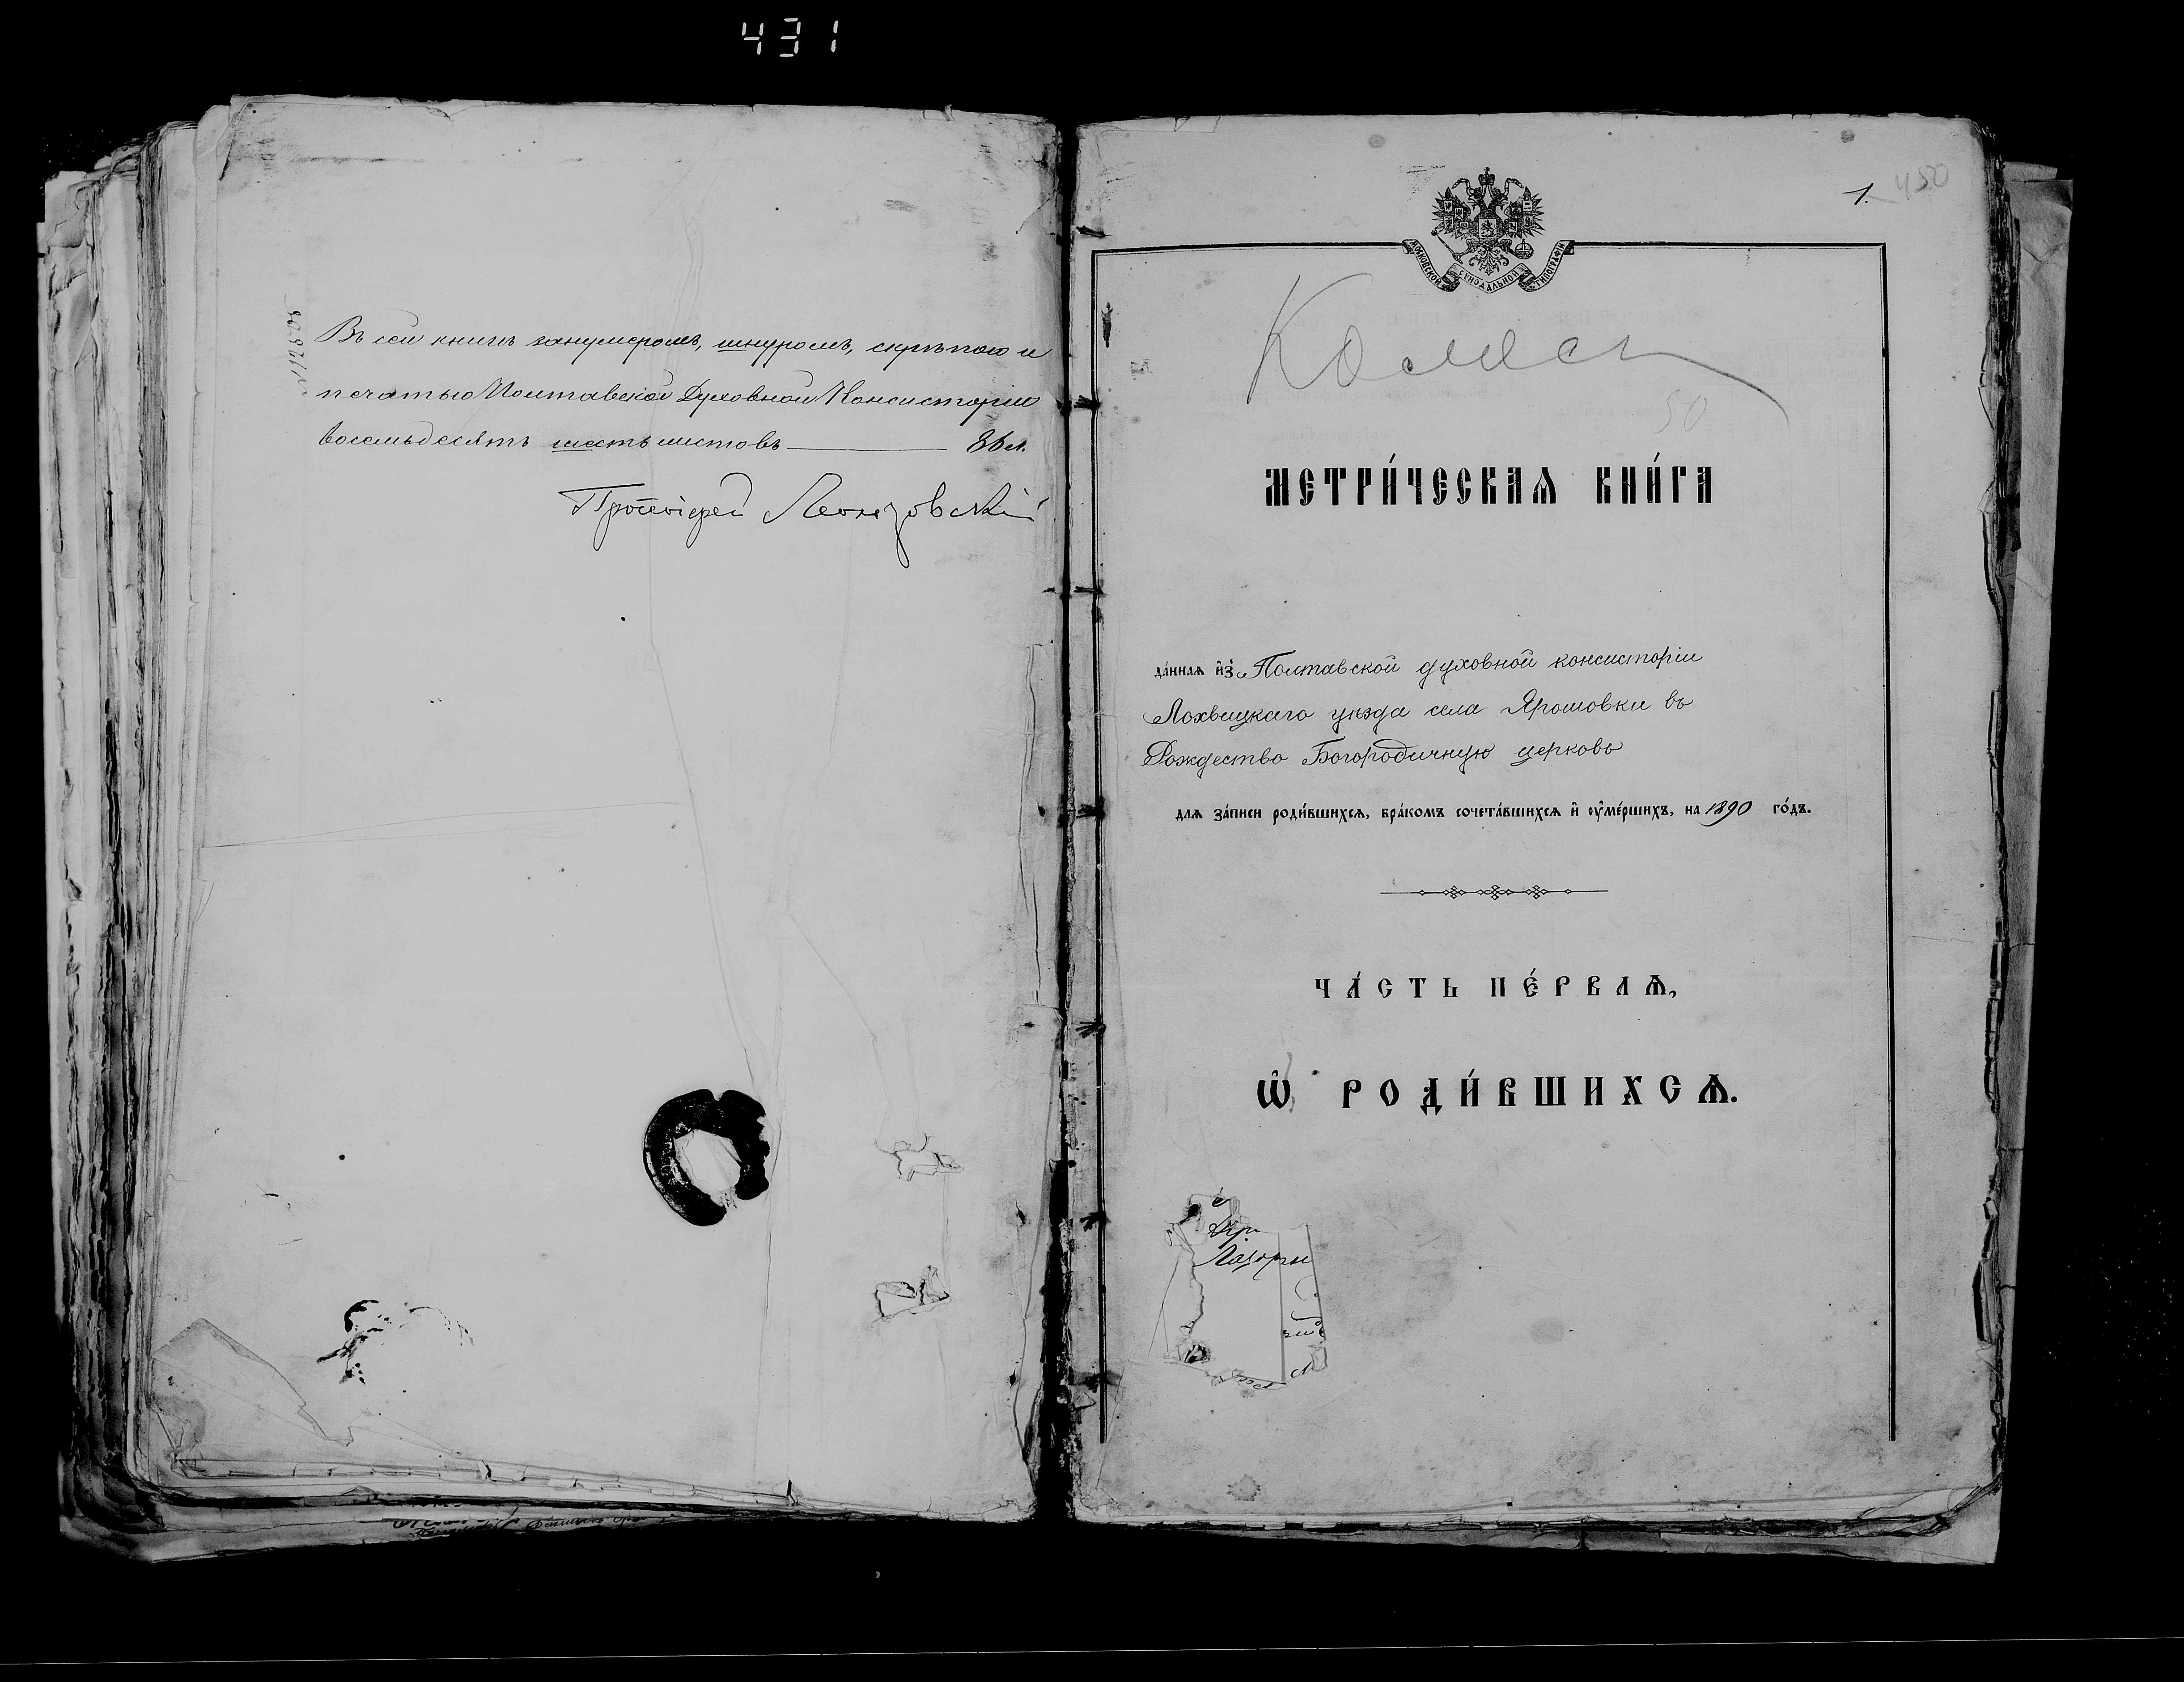 431
Въ сей книгѣ занумеромъ, шнуромъ, скрѣпою и
печатью Полтавской Духовной Консисторіи
восемьдесятъ шесть листовъ 86 л.
Протоіерей
1. 450
МОСКОВСКОЙ СѴНОДАЛЬНОЙ ТИПОГРАФІИ
50
МЕТРИ́ЧЕСКАѦ КНИ́ГА
да́ннаѧ и҆зъ Полтавской духовной консисторіи
Лохвицкаго уѣзда села Ярошовки въ
Рождество Богородичную церковь
для за́писи роди́вшихсѧ, бра́комъ сочета́вшихсѧ и҆ ѹ҆ме́ршихъ, на 1890 го́дъ.
ЧА́СТЬ ПЕ́РВАѦ,
Ѡ҆ РОДИ́ВШИХСѦ.